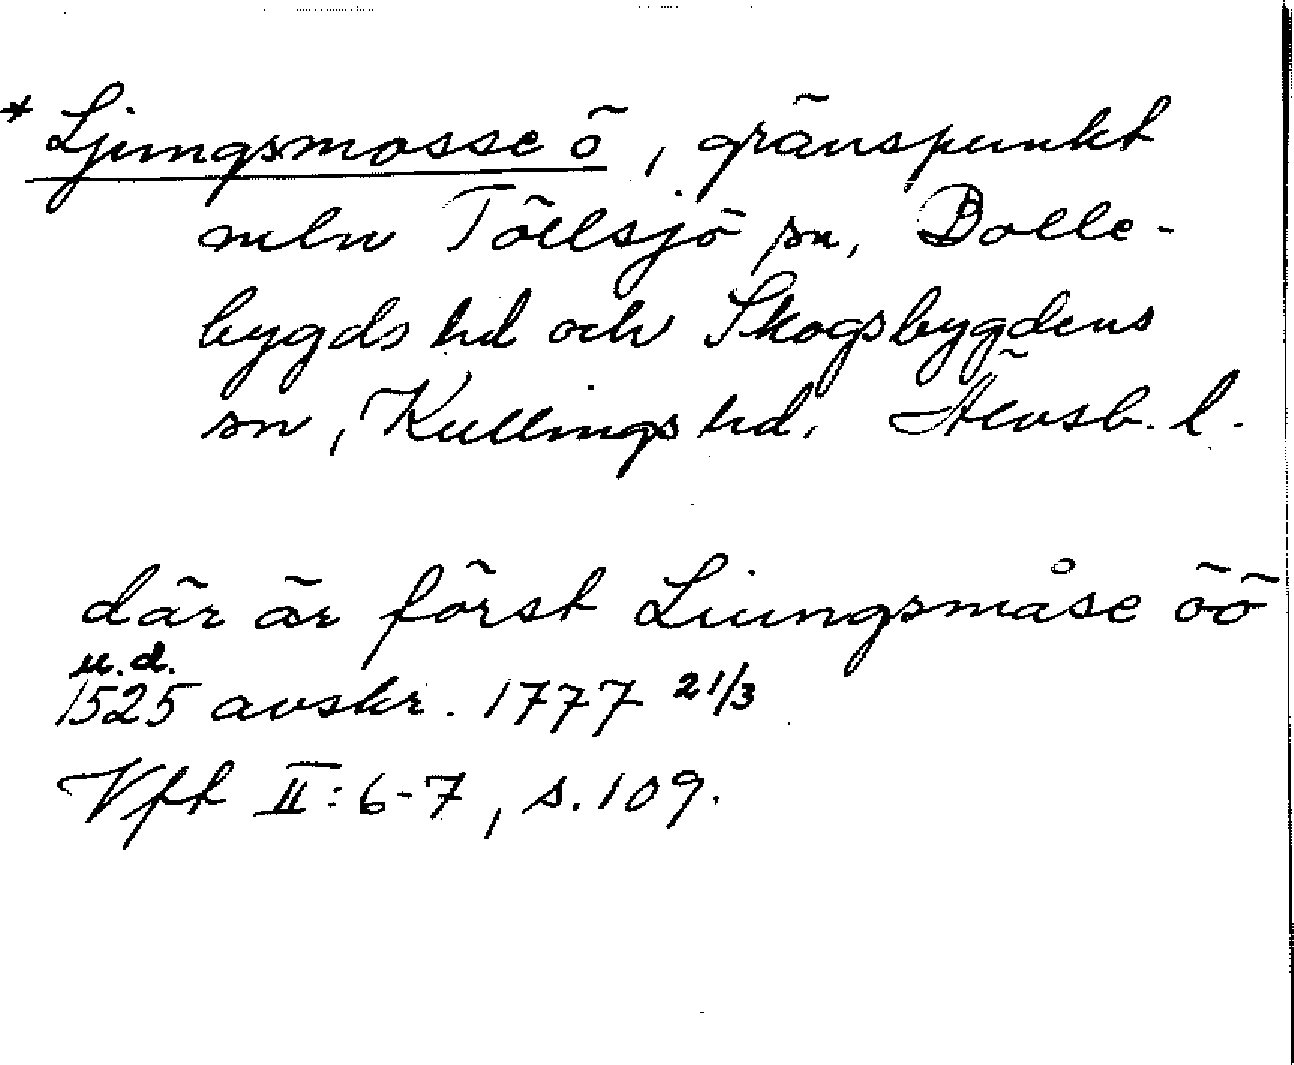 * Ljungsmosse ö, gränspunkt
meln Töllsjö sn, Bolle-
bygds hd och Skogsbygdens
sn, Kullings hd. Älvsb. l.
där är först Liungsmåse öö
u.d.
1525 avskr. 1777 21/3
Vft II:6-7, s. 109.